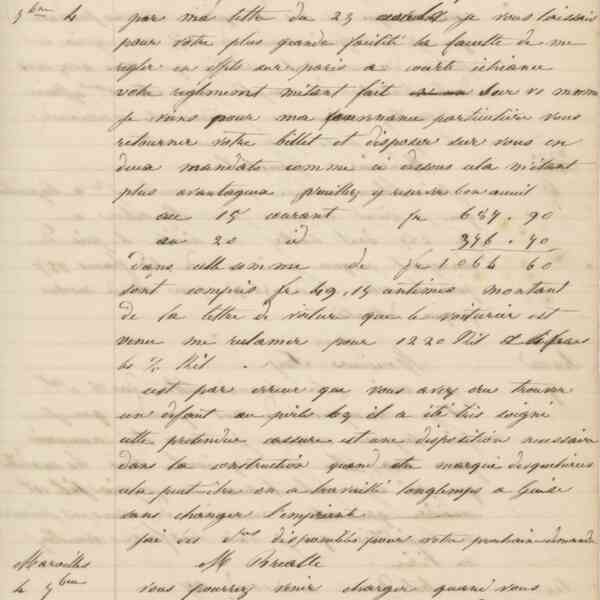 par ma lettre du 23 je vous laissais
pour votre plus grande facilité la faculté de me
régler en effets sur paris a courte échéance
votre règlement m'étant fait sur vs même
je viens pour ma particulière vous
retourner votre billet et disposer sur vous en
deux mandats comme ci dessous cela m'étant
plus avantageux veuillez y réserver bon accueil
au 15 courant fr 687.90
au 20 id 376.70
Dans cette somme de fr 1064 60
sont compris fr 49.15 centimes montant
de la lettre de voiture que le voiturier est
venu me réclamer pour 1220 Kil
les % Kil.
c'est par erreur que vous avez cru trouver
un défaut au il a été très soigné
cette prétendue cassure est une disposition nécessaire
dans la construction quand
cela peut être on a travaillé longtemps a Guise
sans changer l'empreinte
j'ai ces disponibles pour votre prochaine demande
Marseilles M
4 9bre vous pourrez venir charger quand vous